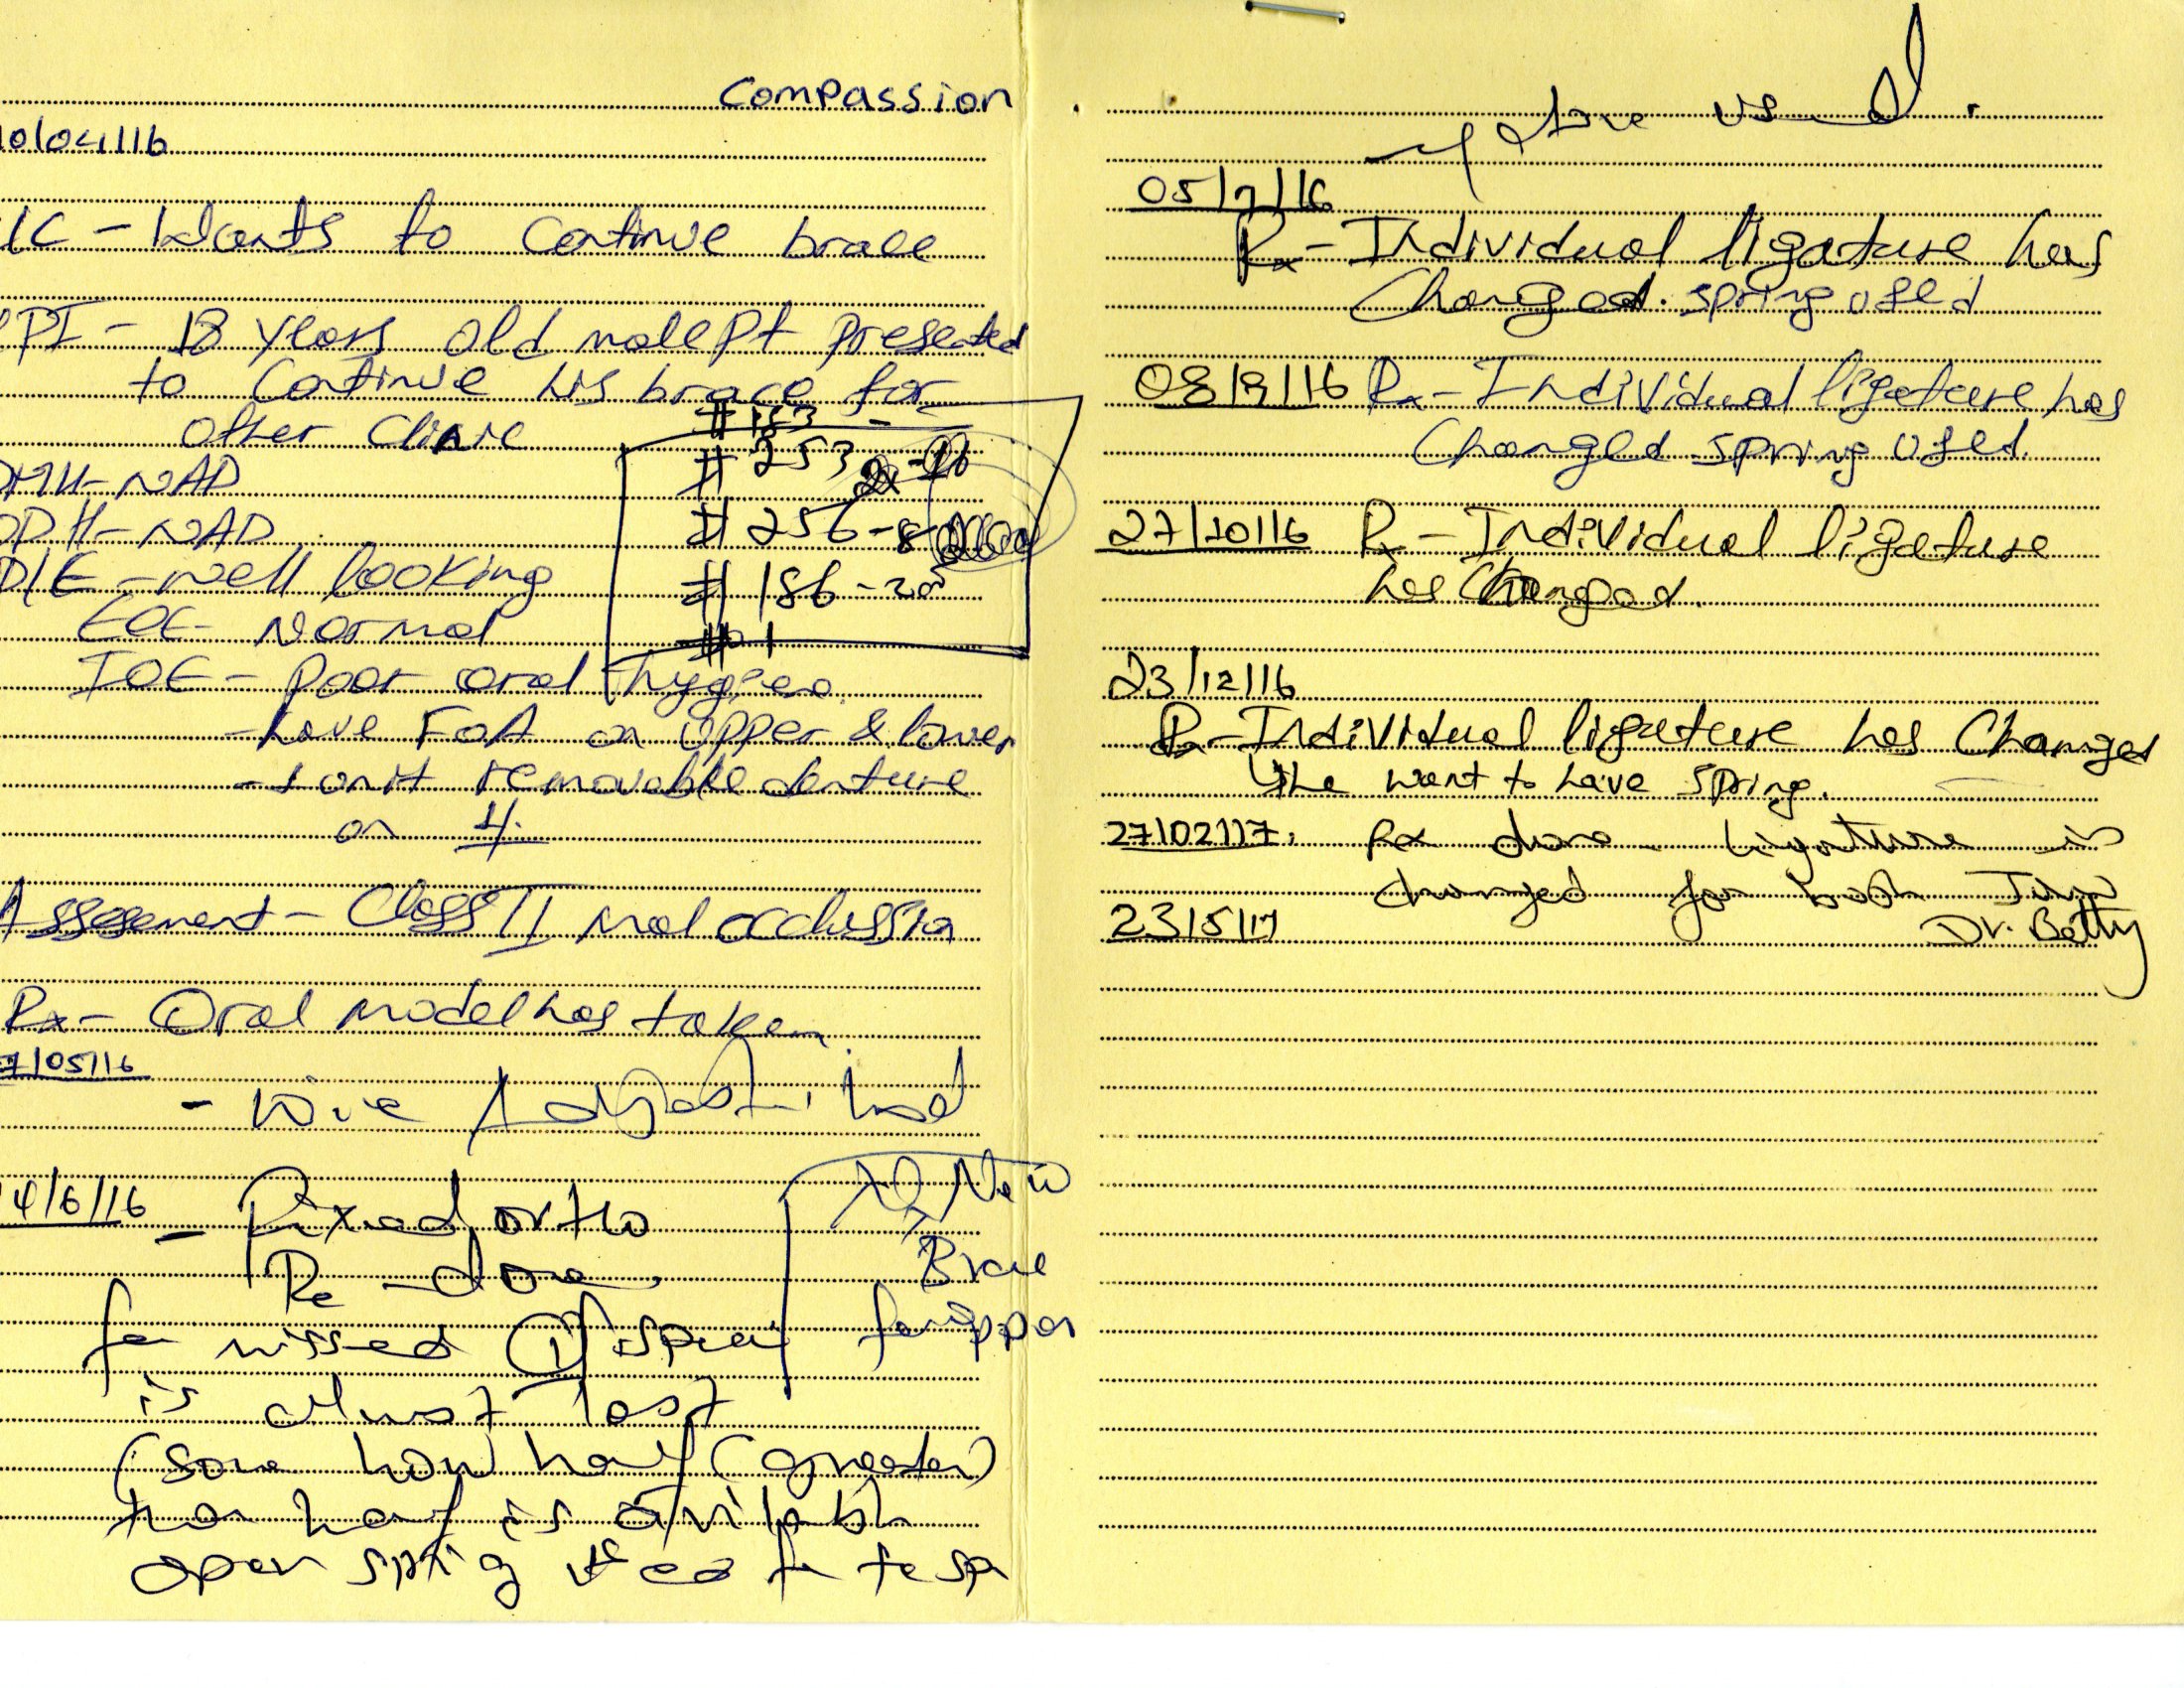 Compassion
0/04/16
C - Wants to continue brace
PI - 18 years old male pt presented
to continue his brace for
other clinic
# 183 -
# 253
# 256 - 8
# 186 - 20
# 1
MH - NAD
DH - NAD
O/E - well looking
EOE - Normal
IOE - poor oral hygiea
- have FOA on upper & lower
- 1 unit removable denture
on 1
Assesement - Class II mal occlussion
Rx - Oral model has taken
7/05/16
- Wire
4/6/16 - Fixed ortho
Re - done
New
Brace
for upper
for missed 1
is almost lost
(some how half (greater)
than half is
open spring used for
used.
05/7/16
Rx - Individual ligature has
Changed. spring used
08/9/16 Rx - Individual ligature has
Changed spring used.
27/10/16 Rx - Individual ligature
has Changed.
23/12/16
Rx - Individual ligature has Changes
he want to have spring.
27/02/17. Rx done ligature is
changed for both Jaw
23/5/17 Dr. Betty